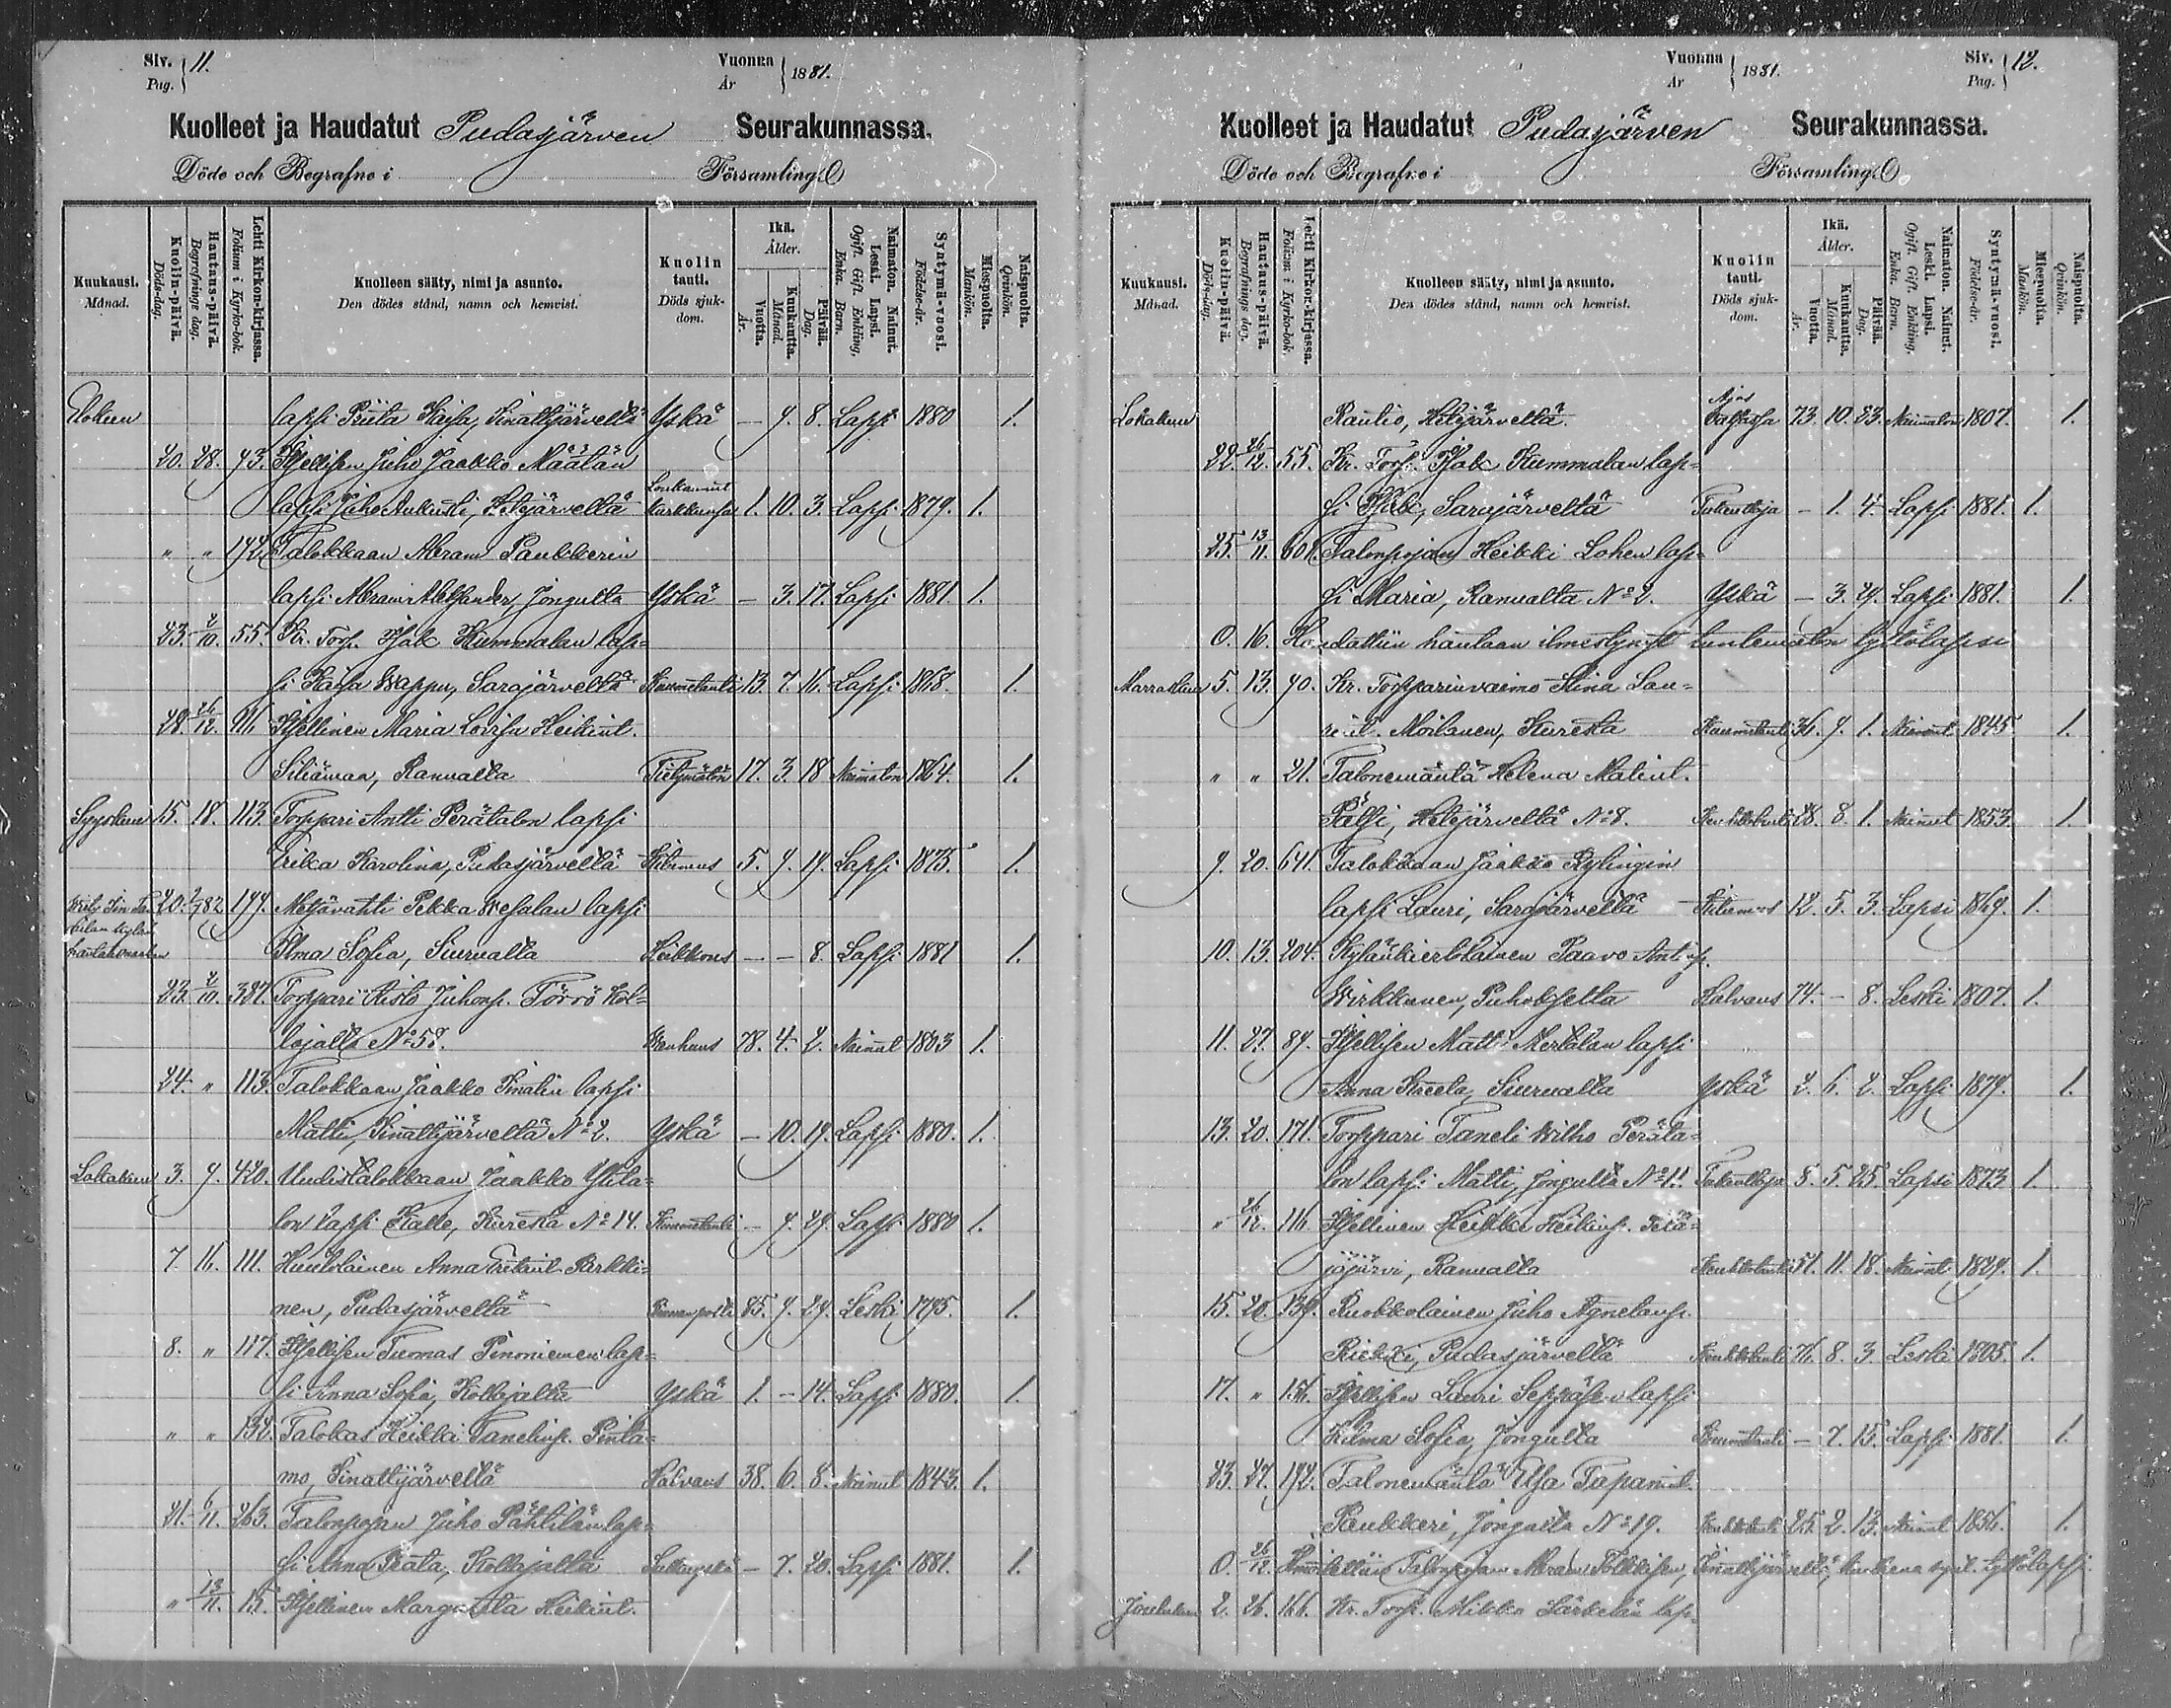 Siv. Pag. } 11.
Vuonna År } 1881.
Kuolleet ja Haudatut Pudasjärven Seurakunnassa.
Döde och Begrafne i Församling.
Kuukausi. Månad.
Kuolin-päivä. Döds-dag.
Hautaus-päivä. Begrafnings dag.
Lehti Kirkon-kirjassa. Folium i Kyrko-bok.
Kuolleen sääty, nimi ja asunto. Den dödes stånd, namn och hemvist.
Kuolin tauti. Döds sjuk-dom.
Ikä. Ålder.
Vuotta. År.
Kuukautta. Månad.
Päivää. Dag.
Naimaton. Nainut. Leski. Lapsi. Ogift. Gift. Enkling. Enka. Barn.
Syntymä-vuosi. Födelse-år.
Miespuolta. Mankön.
Naispuolta. Qvinkön.
Elokuu lapsi Priita Kaisa, Sinattijärveltä Yskä — 9. 8. Lapsi 1880 1.
20. 28. 93. Itsellisen Juho Jaakko Määtän
lapsi Juho Aukusti, Hetejärveltä 1. 10. 3. Lapsi 1879. 1.
" " 192. Talokkaan Abram Paukkerin
lapsi Abram Aleksander, Jongulta Yskä — 3. 17. Lapsi 1881 1.
23. 2/10. 55. Kr. Torp. Isak Kummalan lap=
si Kaisa Wappu, Sarajärveltä Kuumetauti 13. 7. 16. Lapsi 1868. 1.
28. 26/12. 116. Itsellinen Maria Lovisa Heikint.
Siliämaa, Ranualta 17. 3. 18 Naimaton 1864. 1.
Syyskuu 15. 18. 113. Torppari Antti Perätalon lapsi
Erika Karolina, Pudasjärveltä 5. 9. 19. Lapsi 1875. 1.
20. 199. Metsävahti Pekka Wesalan lapsi
Elma Sofia, Siurualta Heikkous — — 8. Lapsi 1881 1.
23. 2/10. 387. Torppari Risto Juhonp. Törrö Kol=
lajalta No 58. Wanhuus 78. 4. 2. Nainut 1803 1.
24. " 113. Talokkaan Jaakko Sinalin lapsi
Matti, Sinattijärveltä No 2. Yskä — 10. 19. Lapsi 1880. 1.
Lokakuu 3. 9. 420. Uudistalokkaan Jaakko Ylita=
lon lapsi Kalle, Kurekta No 14. Kuumetauti — 9. 29. Lapsi 1880 1.
7. 16. 111. Huutolainen Anna Erikint. Särkki=
nen, Pudasjärveltä 85. 9. 29. Leski 1795. 1.
8. " 117. Itsellisen Tuomas Pinoniemen lap=
si Anna Sofia, Kollajalta Yskä 1. — 14. Lapsi 1880. 1.
" " 132. Talokas Heikki Tanelinp. Pinta=
mo, Sinattijärveltä Halvaus 38. 6. 8. Nainut 1843. 1.
21. 6/11. 263. Talonpojan Juho Pähtilän lap=
si Anna Reeta, Kollajalta — 7. 20. Lapsi 1881. 1.
" 13/11. 15. Itsellinen Margareta Heikint.
Siv. Pag. } 12.
Vuonna År } 1881.
Kuolleet ja Haudatut Pudasjärven Seurakunnassa.
Döde och Begrafne i Församling.
Kuukausi. Månad.
Kuolin-päivä. Döds-dag.
Hautaus-päivä. Begrafnings dag.
Lehti Kirkon-kirjassa. Folium i Kyrko-bok.
Kuolleen sääty, nimi ja asunto. Den dödes stånd, namn och hemvist.
Kuolin tauti. Döds sjuk-dom.
Ikä. Ålder.
Vuotta. År.
Kuukautta. Månad.
Päivää. Dag.
Naimaton. Nainut. Leski. Lapsi. Ogift. Gift. Enkling. Enka. Barn.
Syntymä-vuosi. Födelse-år.
Miespuolta. Mankön.
Naispuolta. Qvinkön.
Lokakuu Raulio, Hetejärveltä. 73. 10. 23. Naimaton 1807. 1.
22. 26/12. 55. Kr. Torp. Isak Kummalan lap=
si Isak, Sarajärveltä — 1. 4. Lapsi 1881. 1.
25. 13/11. 601. Talonpojan Heikki Lohen lap=
si Maria, Ranualta No 2. Yskä — 3. 29. Lapsi 1881. 1.
0. 16. Haudattiin hautaan ilmestynyt tuntematon lyttölapsi
Marraskuu 5. 13. 90. Kr. Torpparinvaimo Stina Lau=
rint. Moilanen, Kurekta Kuumetauti 36. 9. 1. Nainut 1845 1.
" " 21. Talonemäntä Helena Matint.
Pätsi, Hetejärveltä No 8. Keuhkotauti 28. 8. 1. Nainut 1853. 1.
9. 20. 641. Talokkaan Jaakko Kylingin
lapsi Lauri, Sarajärveltä 12. 5. 3. Lapsi 1869. 1.
10. 13. 204. Kylänkiertolainen Paavo Antinp.
Wirkkunen, Puhokselta Halvaus 74. — 8. Leski 1807. 1.
11. 27. 89. Itsellisen Matti Mertalan lapsi
Anna Kreeta, Siurualta Yskä 2. 6. 2. Lapsi 1879. 1.
13. 20. 171. Torppari Taneli Wilho Peräta=
lon lapsi Matti, Jongulta No 11. 8. 5. 25. Lapsi 1873 1.
" 26/12. 116. Itsellinen Heikki Heikinp. Petä=
jäjärvi, Ranualta Keuhkotauti 51. 11. 18. Nainut 1829. 1.
15. 20. 139. Ruokkolainen Juho Agnetanp.
Riekki, Pudasjärveltä Keuhkotauti 76. 8. 3. Leski 1805. 1.
17. " 156. Itsellisen Lauri Seppäsen lapsi
Hilma Sofia, Jongulta Kuumetauti — 7. 15. Lapsi 1881. 1.
23. 27. 192. Talonemäntä Elsa Tapanint.
Paukkeri, Jongulta No 19. Keuhkotauti 25. 2. 13. Nainut 1856. 1.
0. 26/12. Talonpojan Abram Kolkkisen, Sinattijärveltä, kuolleena synt. lyttölapsi.
Joulukuu 2. 26. 166. Kr. Torp. Mikko Särkelän lap=